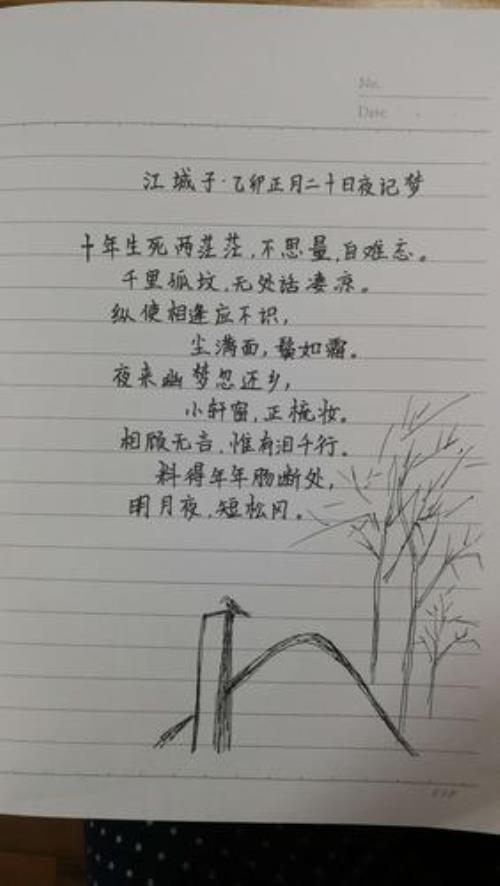 No.
Date
江城子·乙卯正月二十日夜记梦
十年生死两茫茫,不思量,自难忘。
千里孤坟,无处话凄凉。
纵使相逢应不识,
尘满面,鬓如霜。
夜来幽梦忽还乡,
小轩窗,正梳妆。
相顾无言,惟有泪千行。
料得年年肠断处,
明月夜,短松冈。